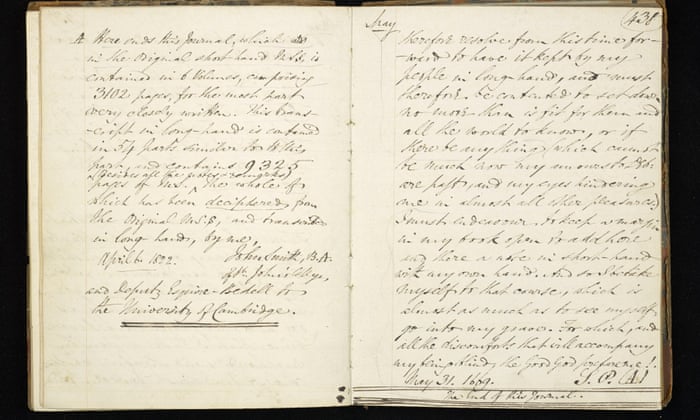 4 Here ends this Journal, which
in the Original short hand M.S.S. is
contained in 6 Volumes, comprising
3102 pages, for the most part
very closely written. This trans-
cript in long-hand is contained
in 54 parts similar to this
part, and contains 9325
(besides all the notes & remarks)
pages of M.S. the whole of
which has been deciphered from
the Original M.S.S, and transcribed
in long hand, by me,
April 1822. John Smith, B.A.
of St. John's College,
and Deputy Esquire-Bedell to
the University of Cambridge.
May (438
therefore resolve from this time for-
ward to have it kept by my
people in long-hand, and must
therefore be contented to set down
no more than is fit for them and
all the world to know, or if
there be any thing (which cannot
be much now my amours to Deb:
are past, and my eyes hindering
me in almost all other pleasures)
I must endeavour to keep a margin
in my book open to add here
and there a note in short-hand
with my own hand. And so I betake
myself to that course, which is
almost as much as to see myself
go into my grave. For which, and
all the discomforts that will accompany
my being blind, the Good God prepare me!
May 31. 1669. S. P. (4)
The end of this Journal.